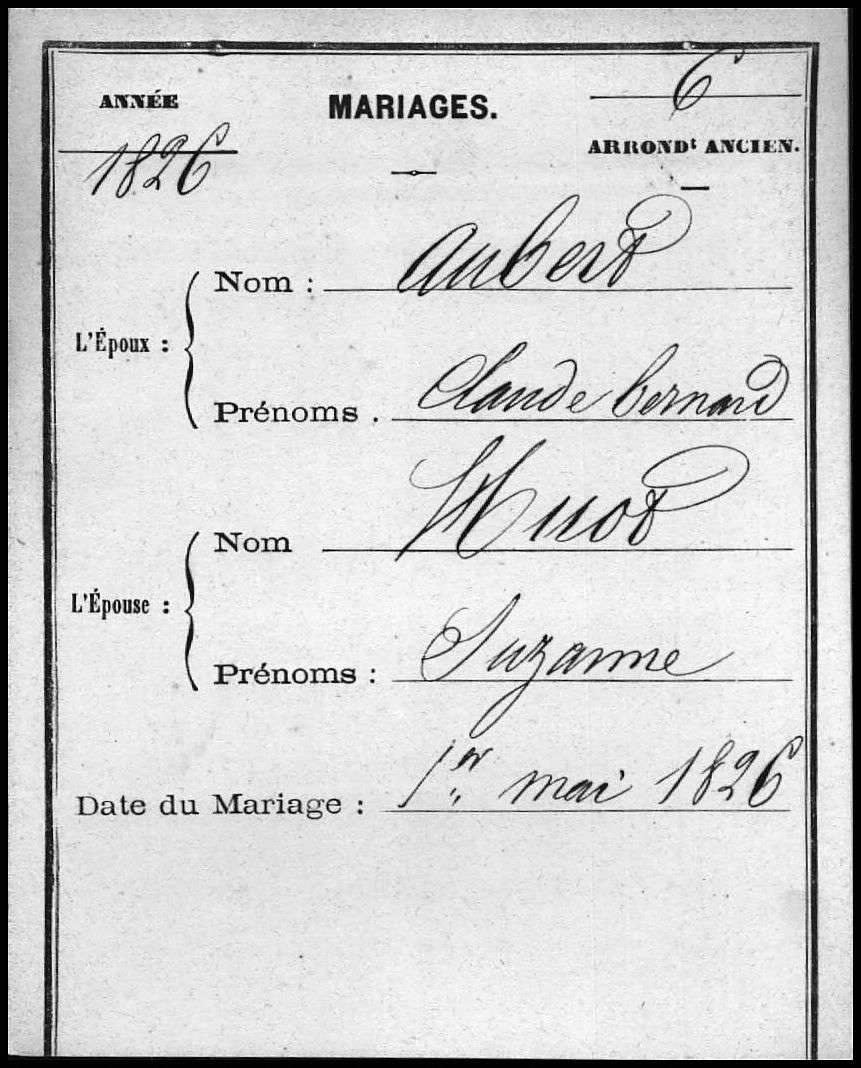 ANNÉE
1826
MARIAGES.
6
ARRONDt ANCIEN.
L'Époux :
Nom : Aubert
Prénoms . Claude bernard
L'Épouse :
Nom Huot
Prénoms : Suzanne
Date du Mariage : 1er mai 1826